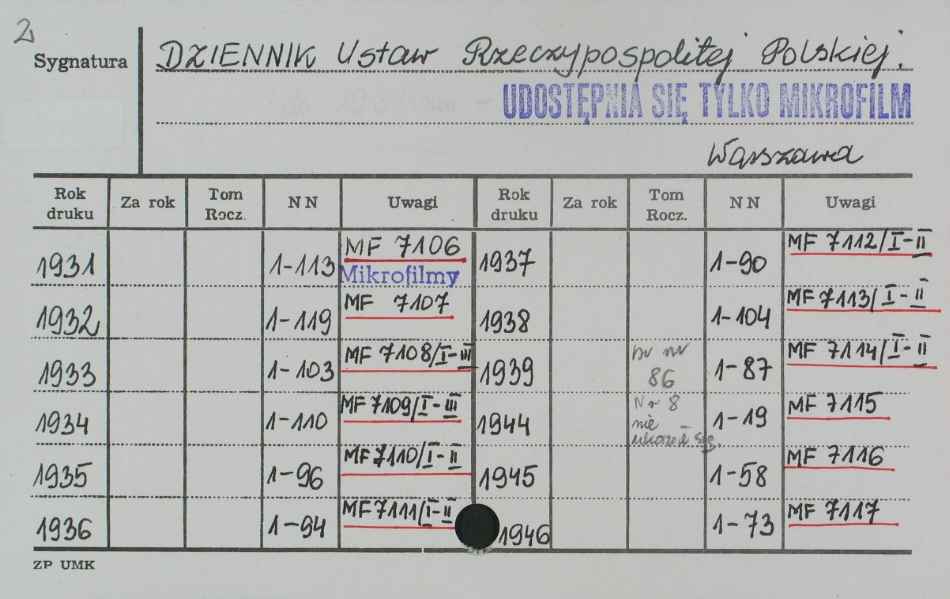 2
Sygnatura
DZIENNIK Ustaw Rzeczypospolitej Polskiej.
UDOSTĘPNIA SIĘ TYLKO MIKROFILM
Warszawa
Rok druku Za rok Tom Rocz. NN Uwagi Rok druku Za rok Tom Rocz. NN Uwagi
1931 1-113 MF 7106 Mikrofilmy 1937 1-90 MF 7112/I-II
1932 1-119 MF 7107 1938 1-104 MF 7113/I-II
1933 1-103 MF 7108/I-III 1939 nr 86 1-87 MF 7114/I-II
1934 1-110 MF 7109/I-III 1944 Nr 8 nie się. 1-19 MF 7115
1935 1-96 MF 7110/I-II 1945 1-58 MF 7116
1936 1-94 MF 7111/I-II 1946 1-73 MF 7117
ZP UMK